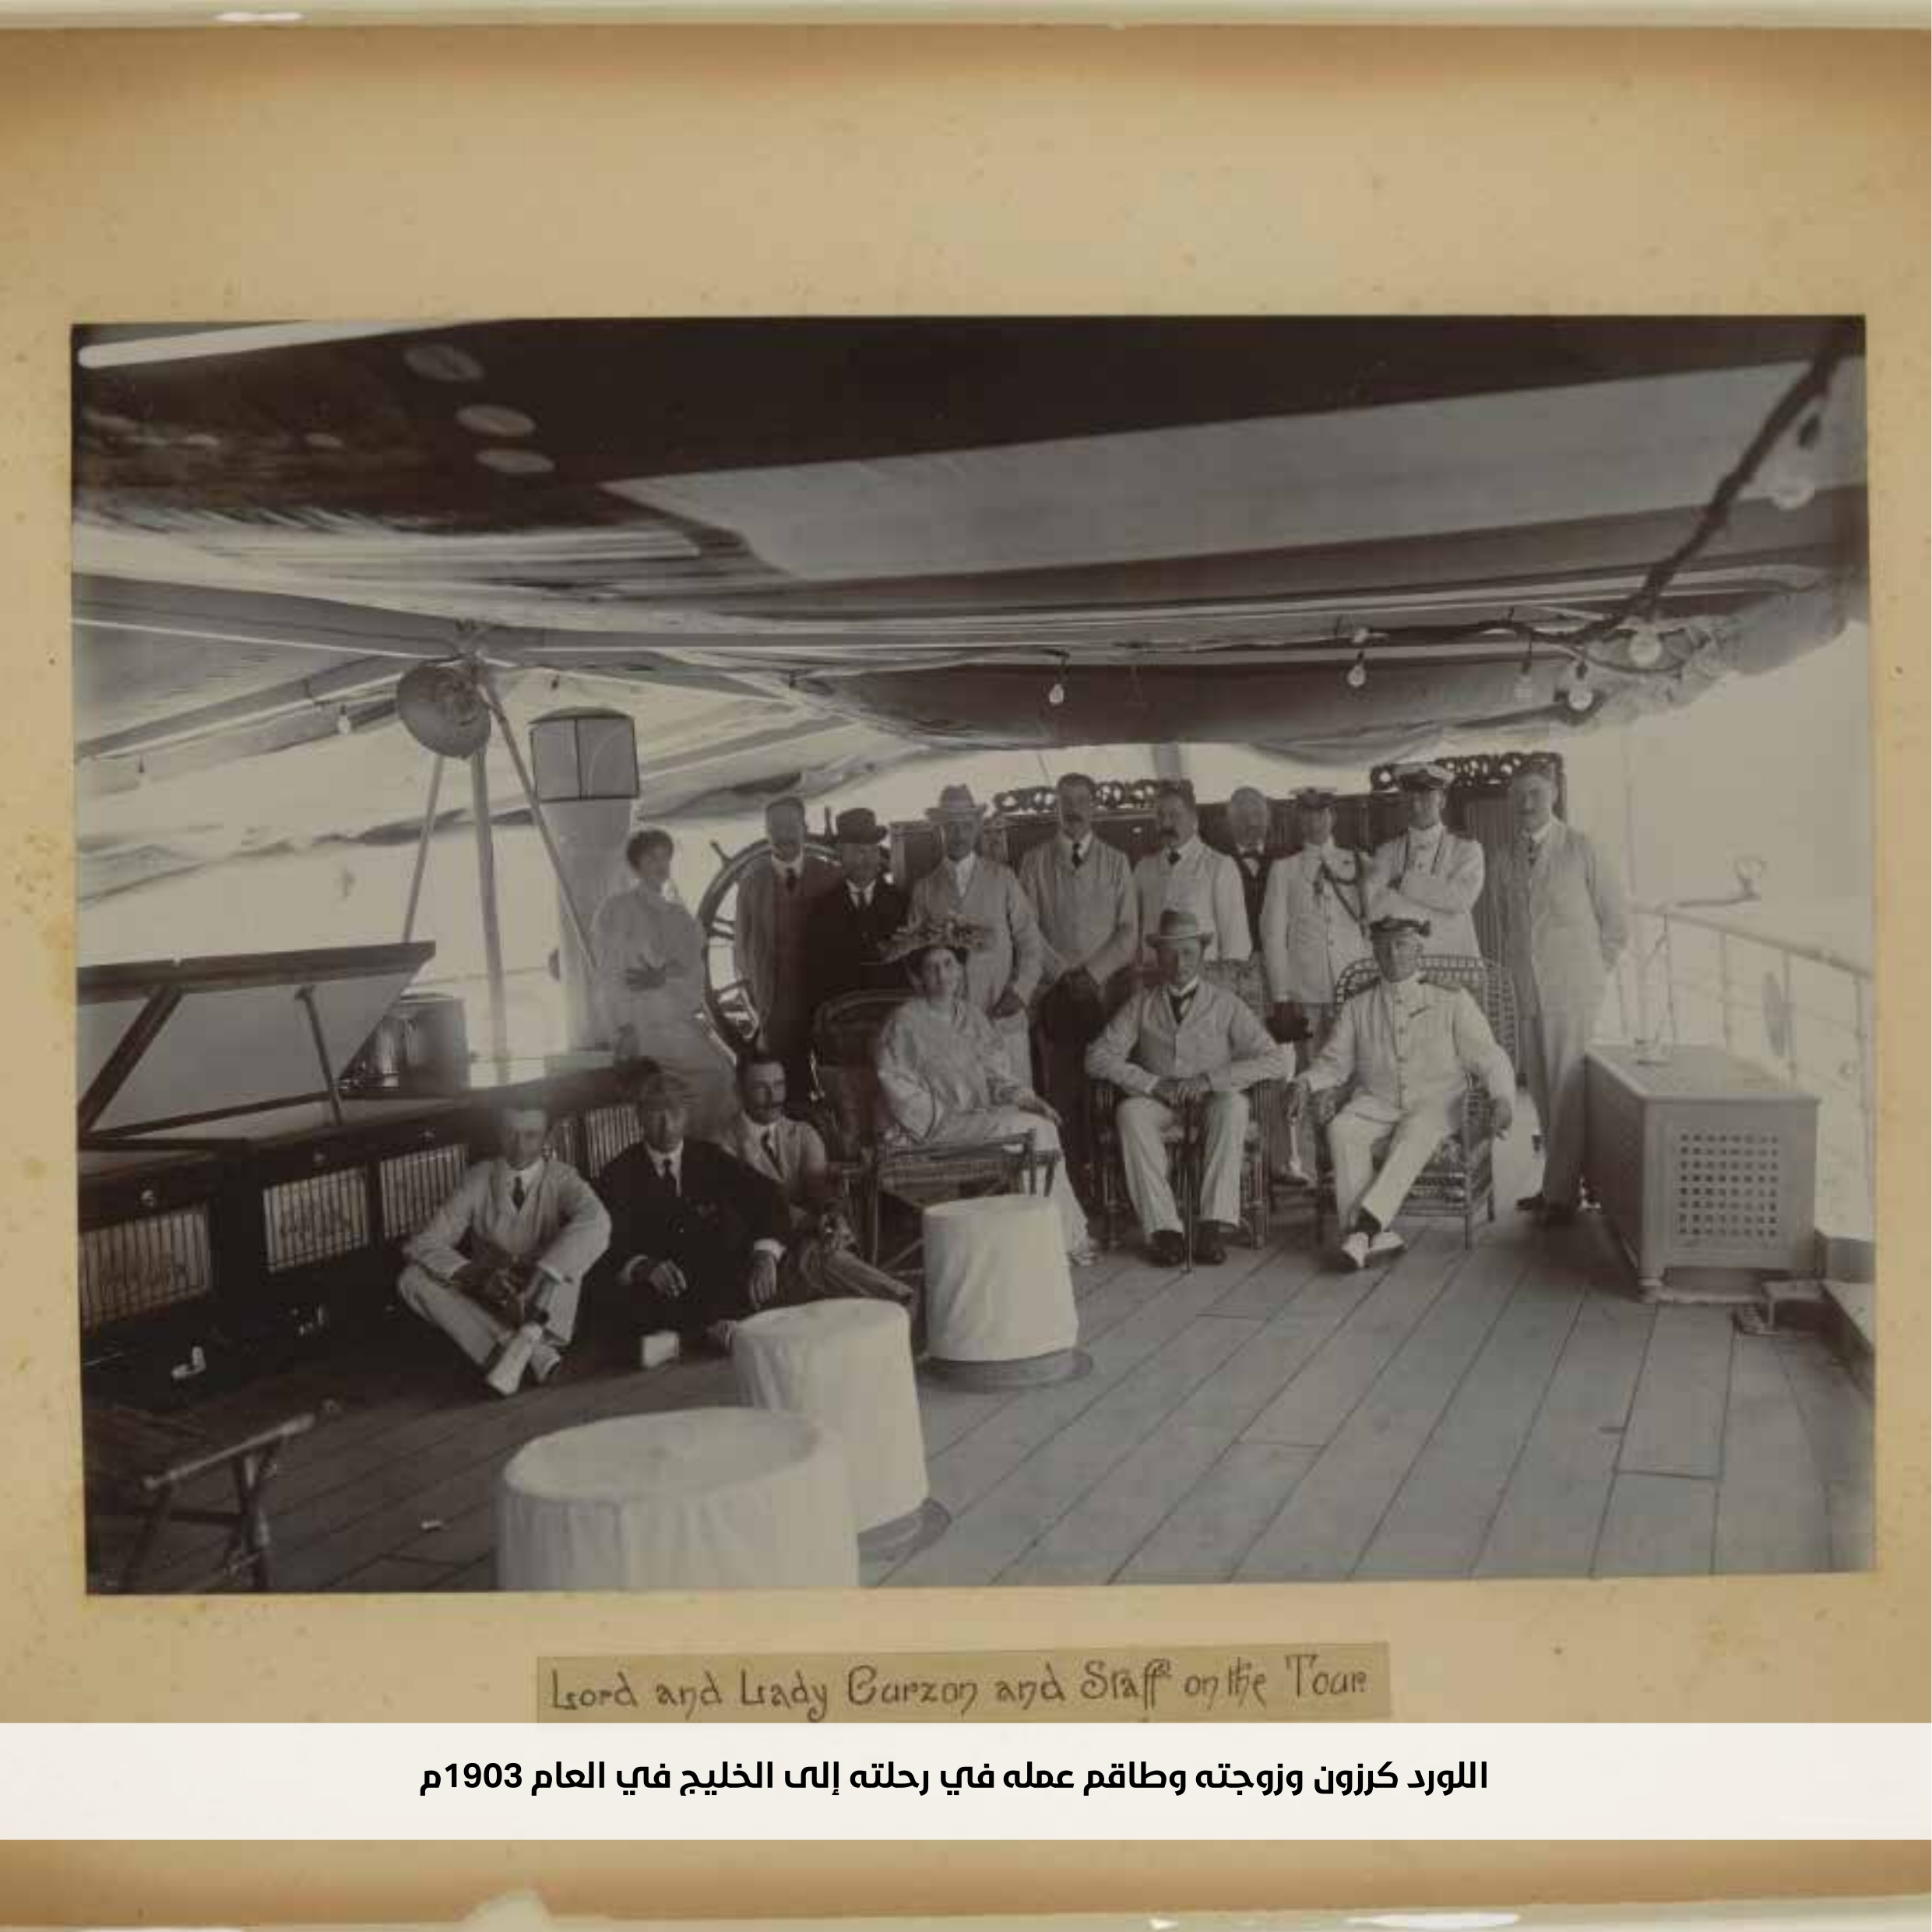 Lord and Lady Curzon and Staff on the Tour
اللورد كرزون وزوجته وطاقم عمله في رحلته إلى الخليج في العام 1903م